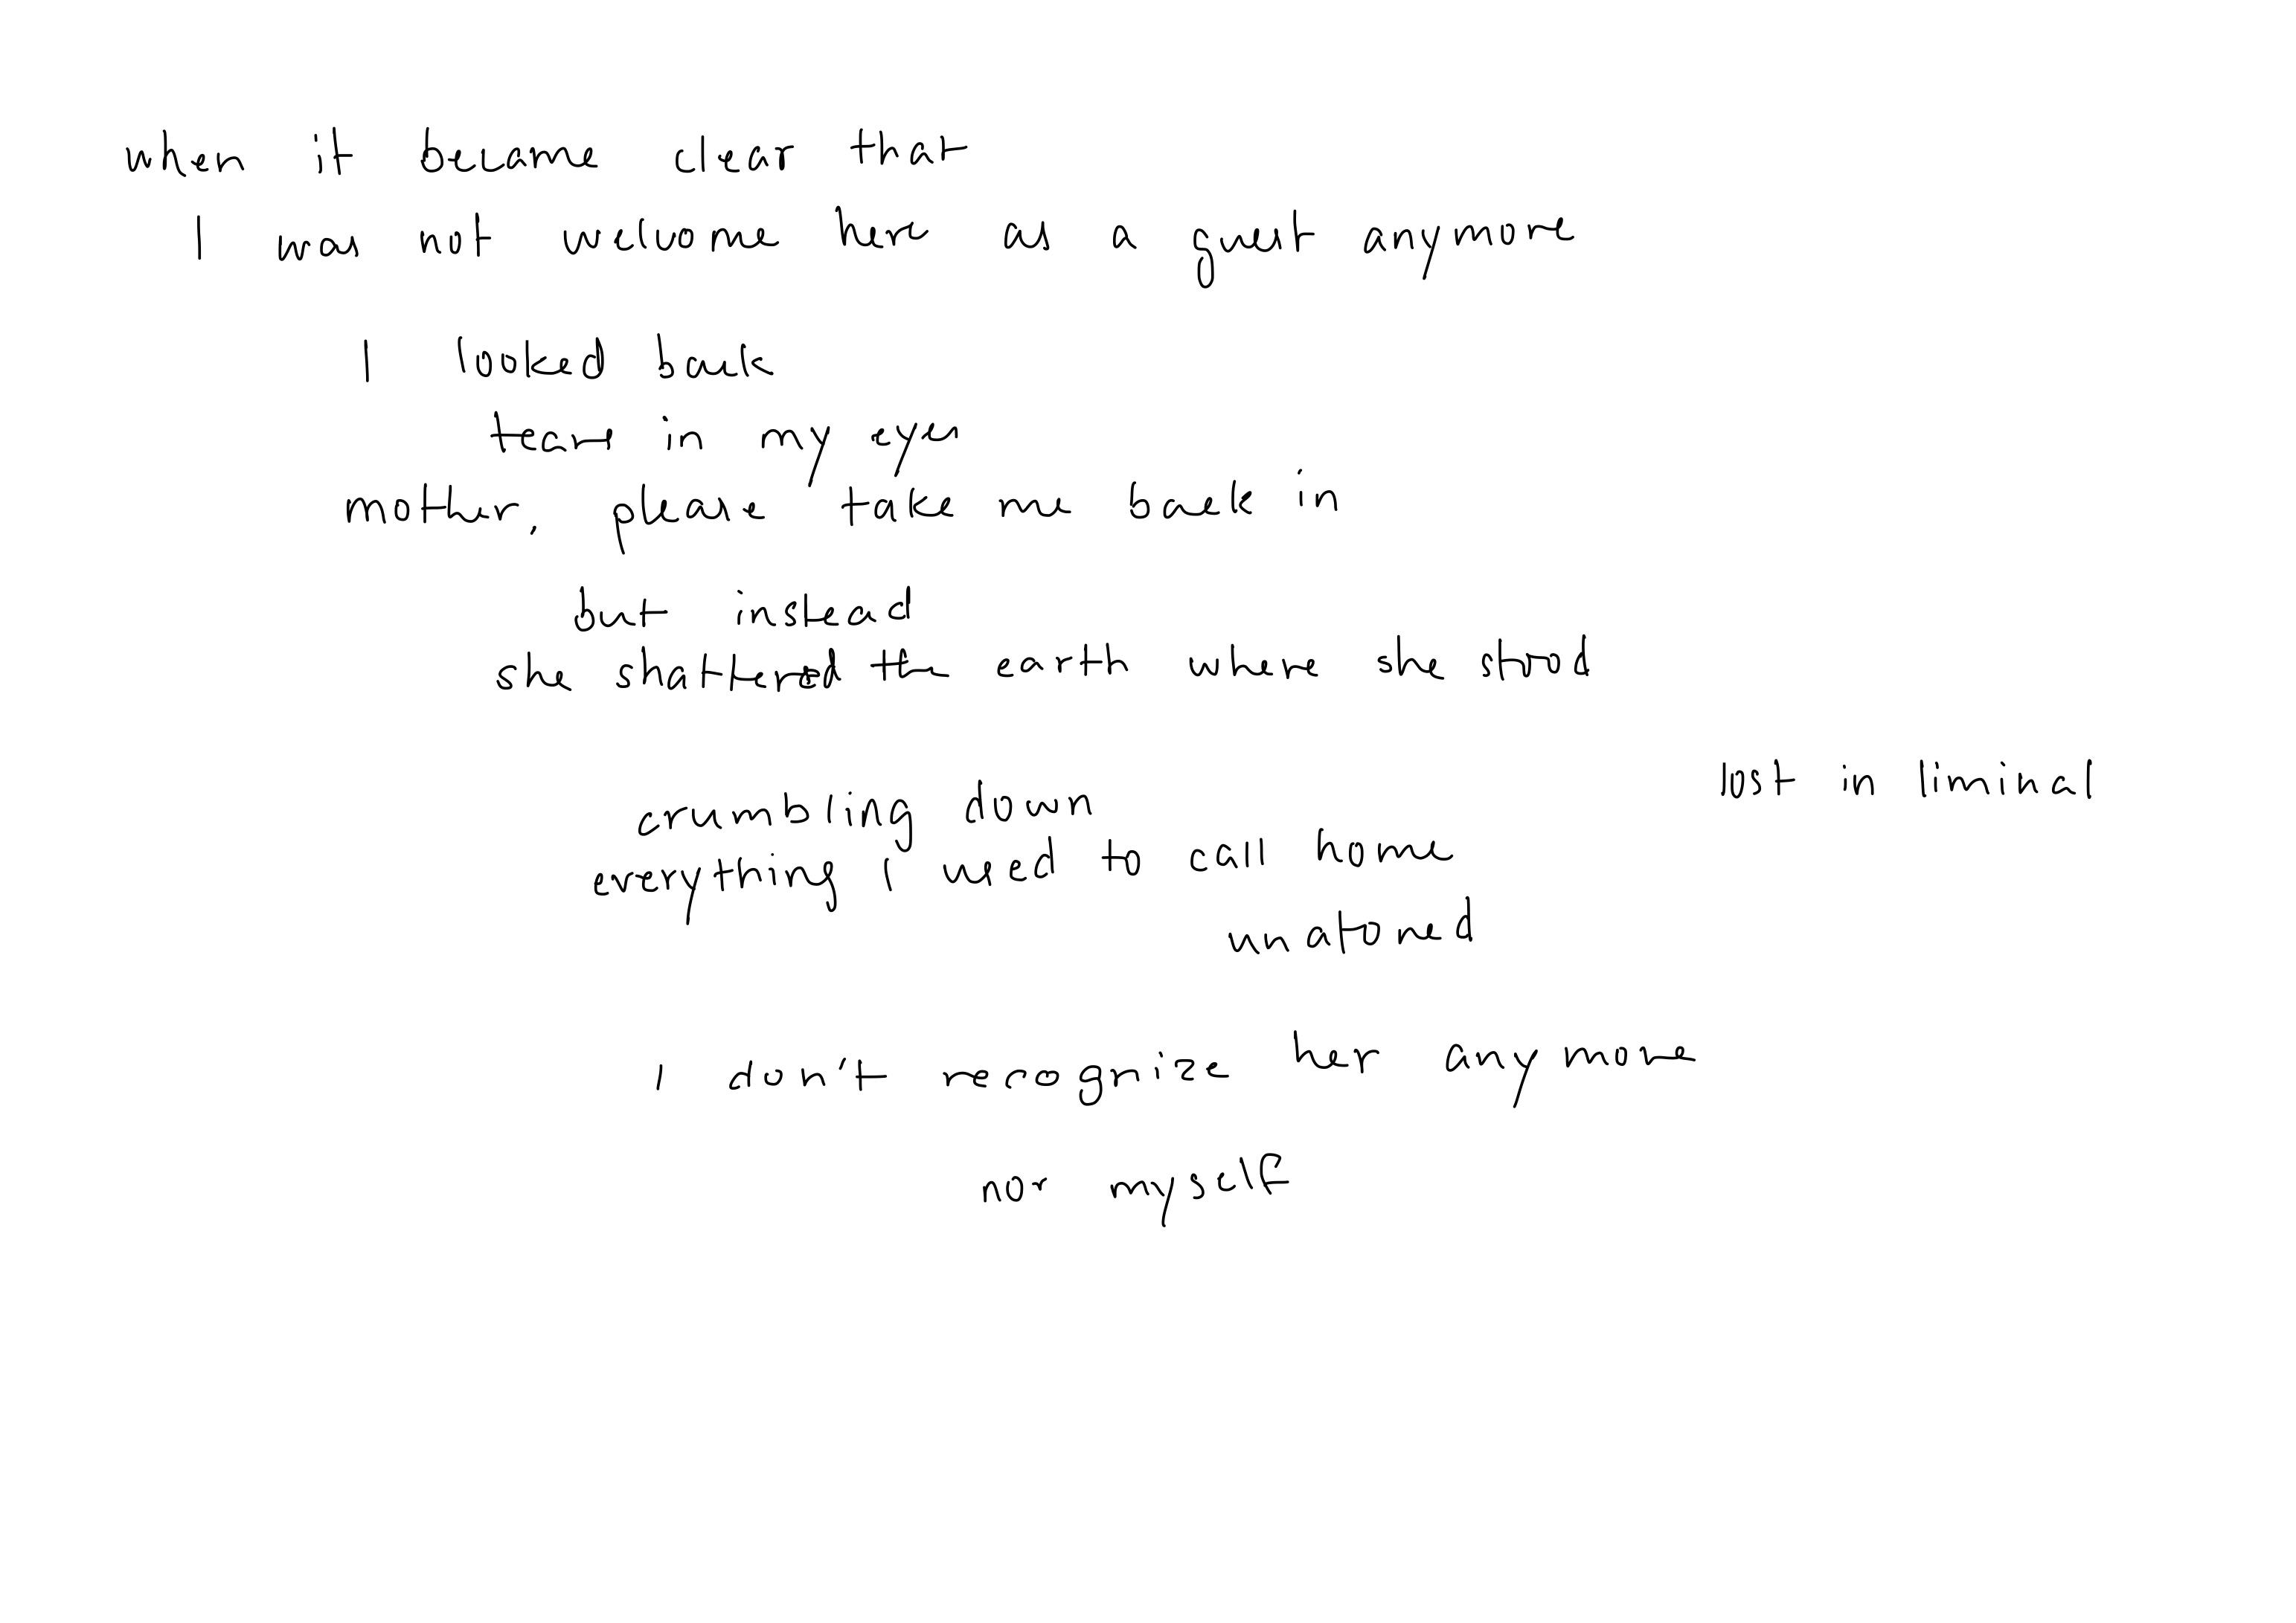 when it became clear that
I was not welcome here as a guest anymore
I looked back
tears in my eyes
mother, please take me back in
but instead
she shattered the earth where she stood
lost in liminal
crumbling down
everything I used to call home
unatoned
I don't recognize her anymore
nor myself